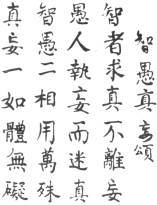 智愚真妄頌
智者求真不離妄
愚人執妄而迷真
智愚二相用萬殊
真妄一如體無礙